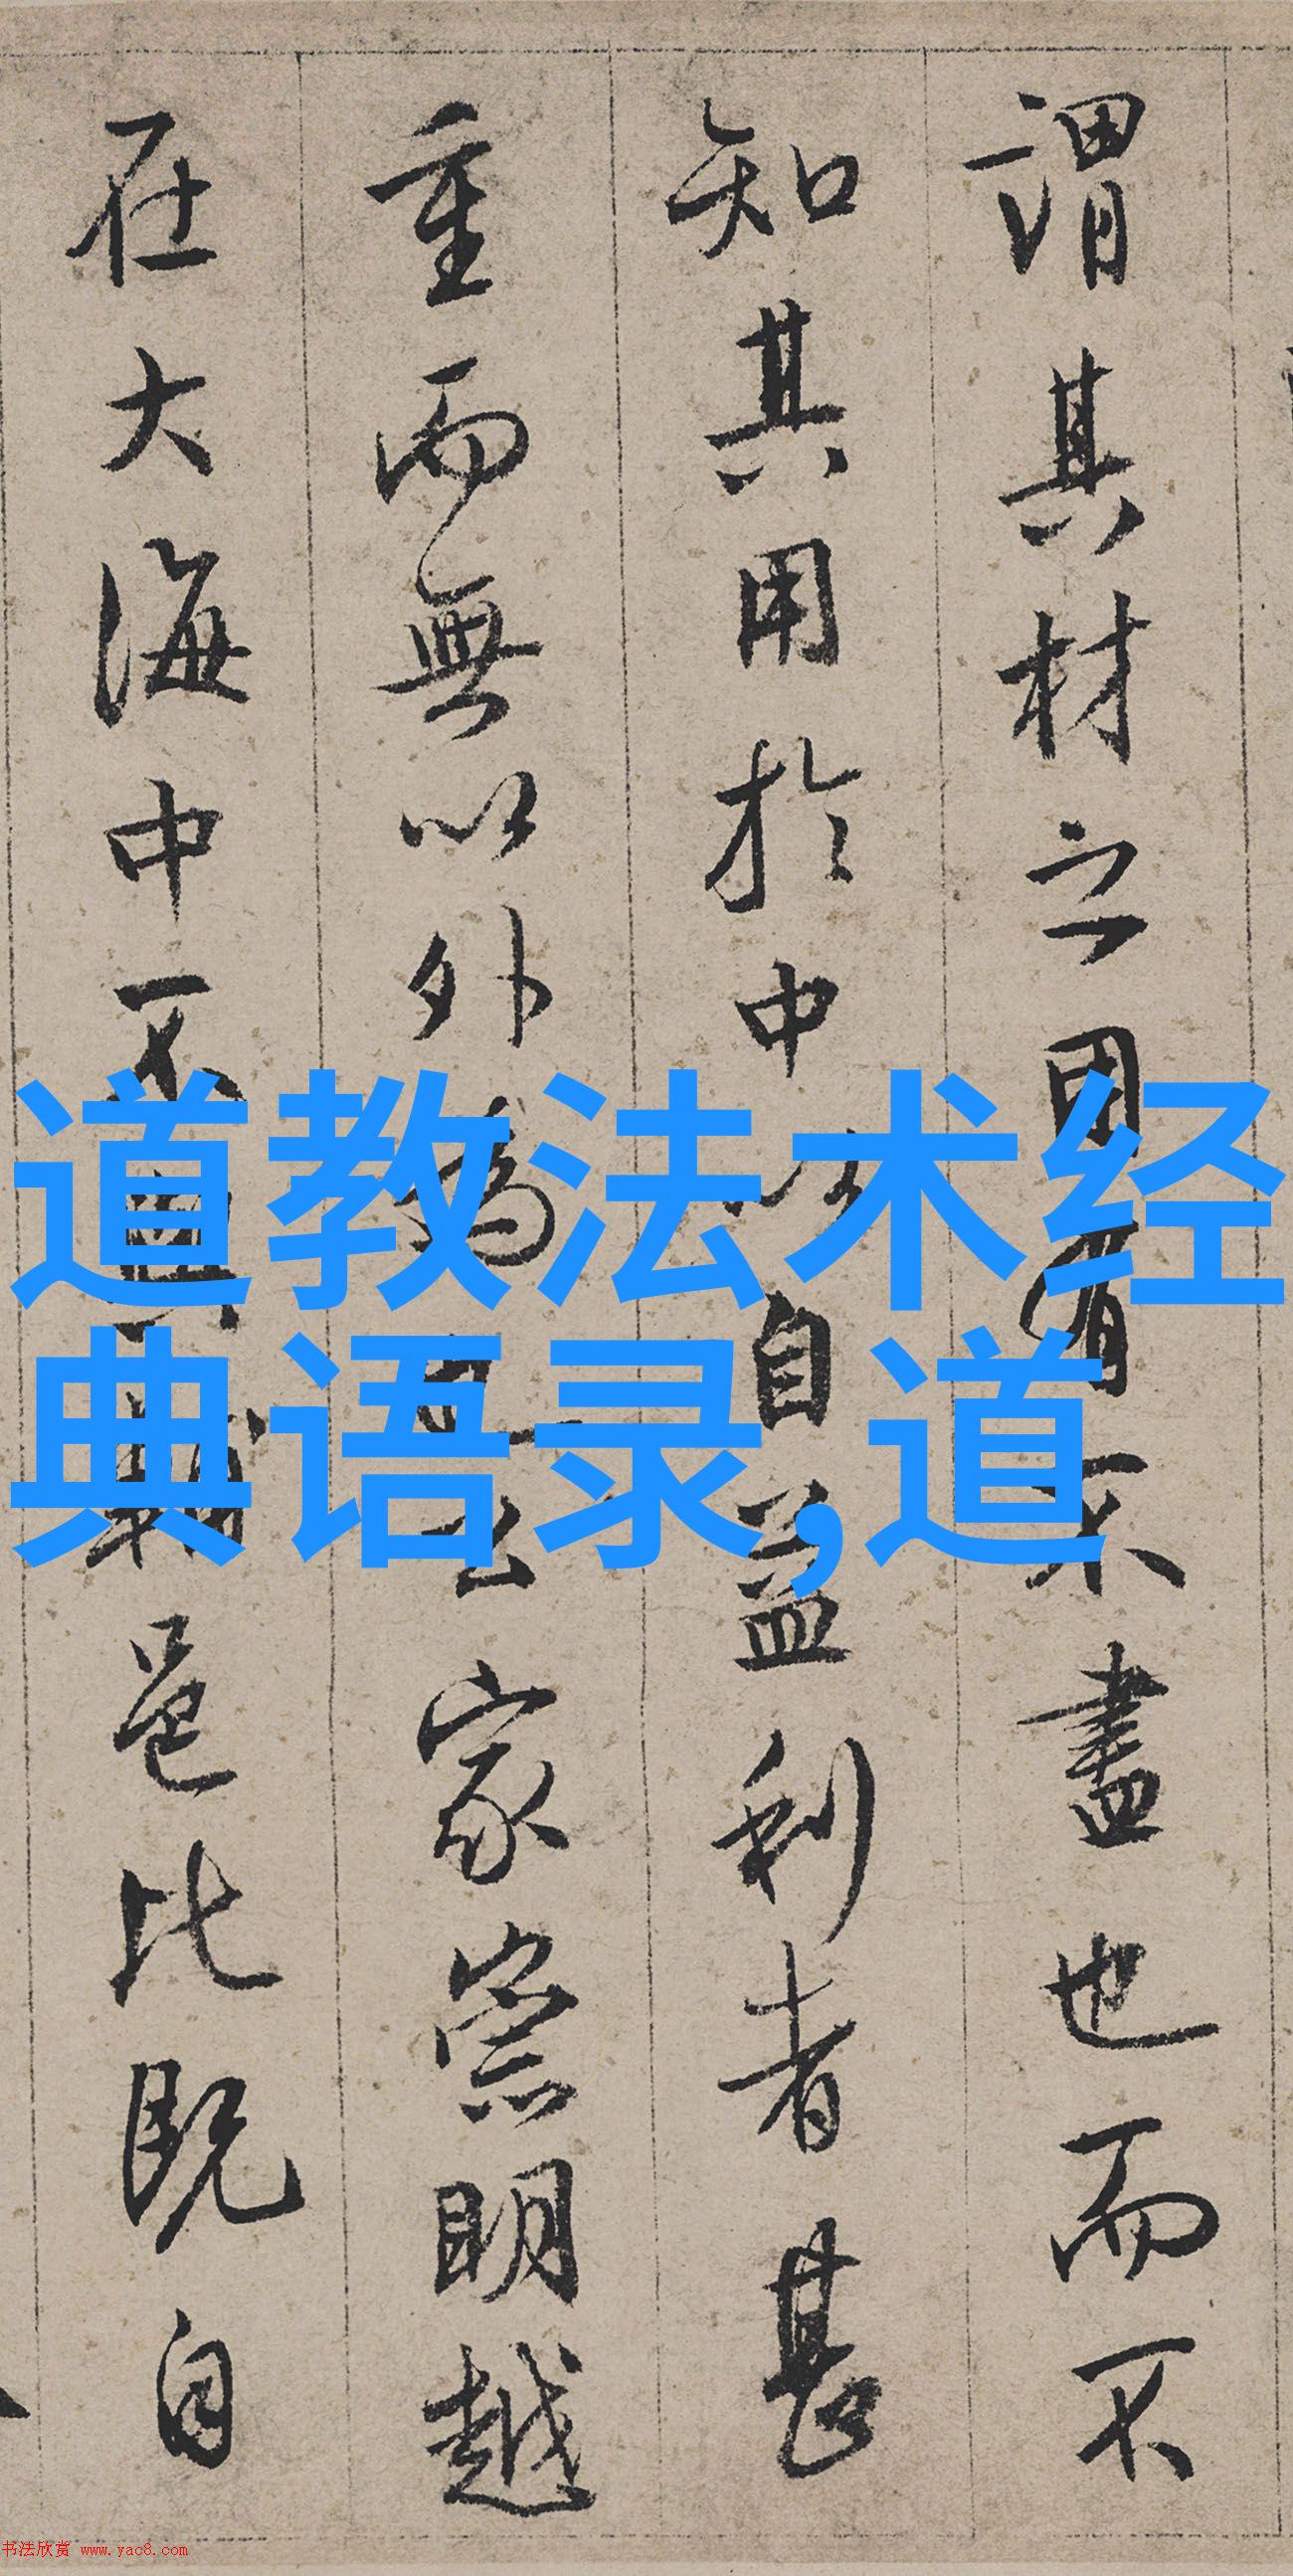 謂其材之用有不盡也而不
知其用於中以自益利者甚
重而無以外為公家崇明越
在大海中不與邑比既自
道教法术经
典语录,道
书法欣赏 www.yac8.com